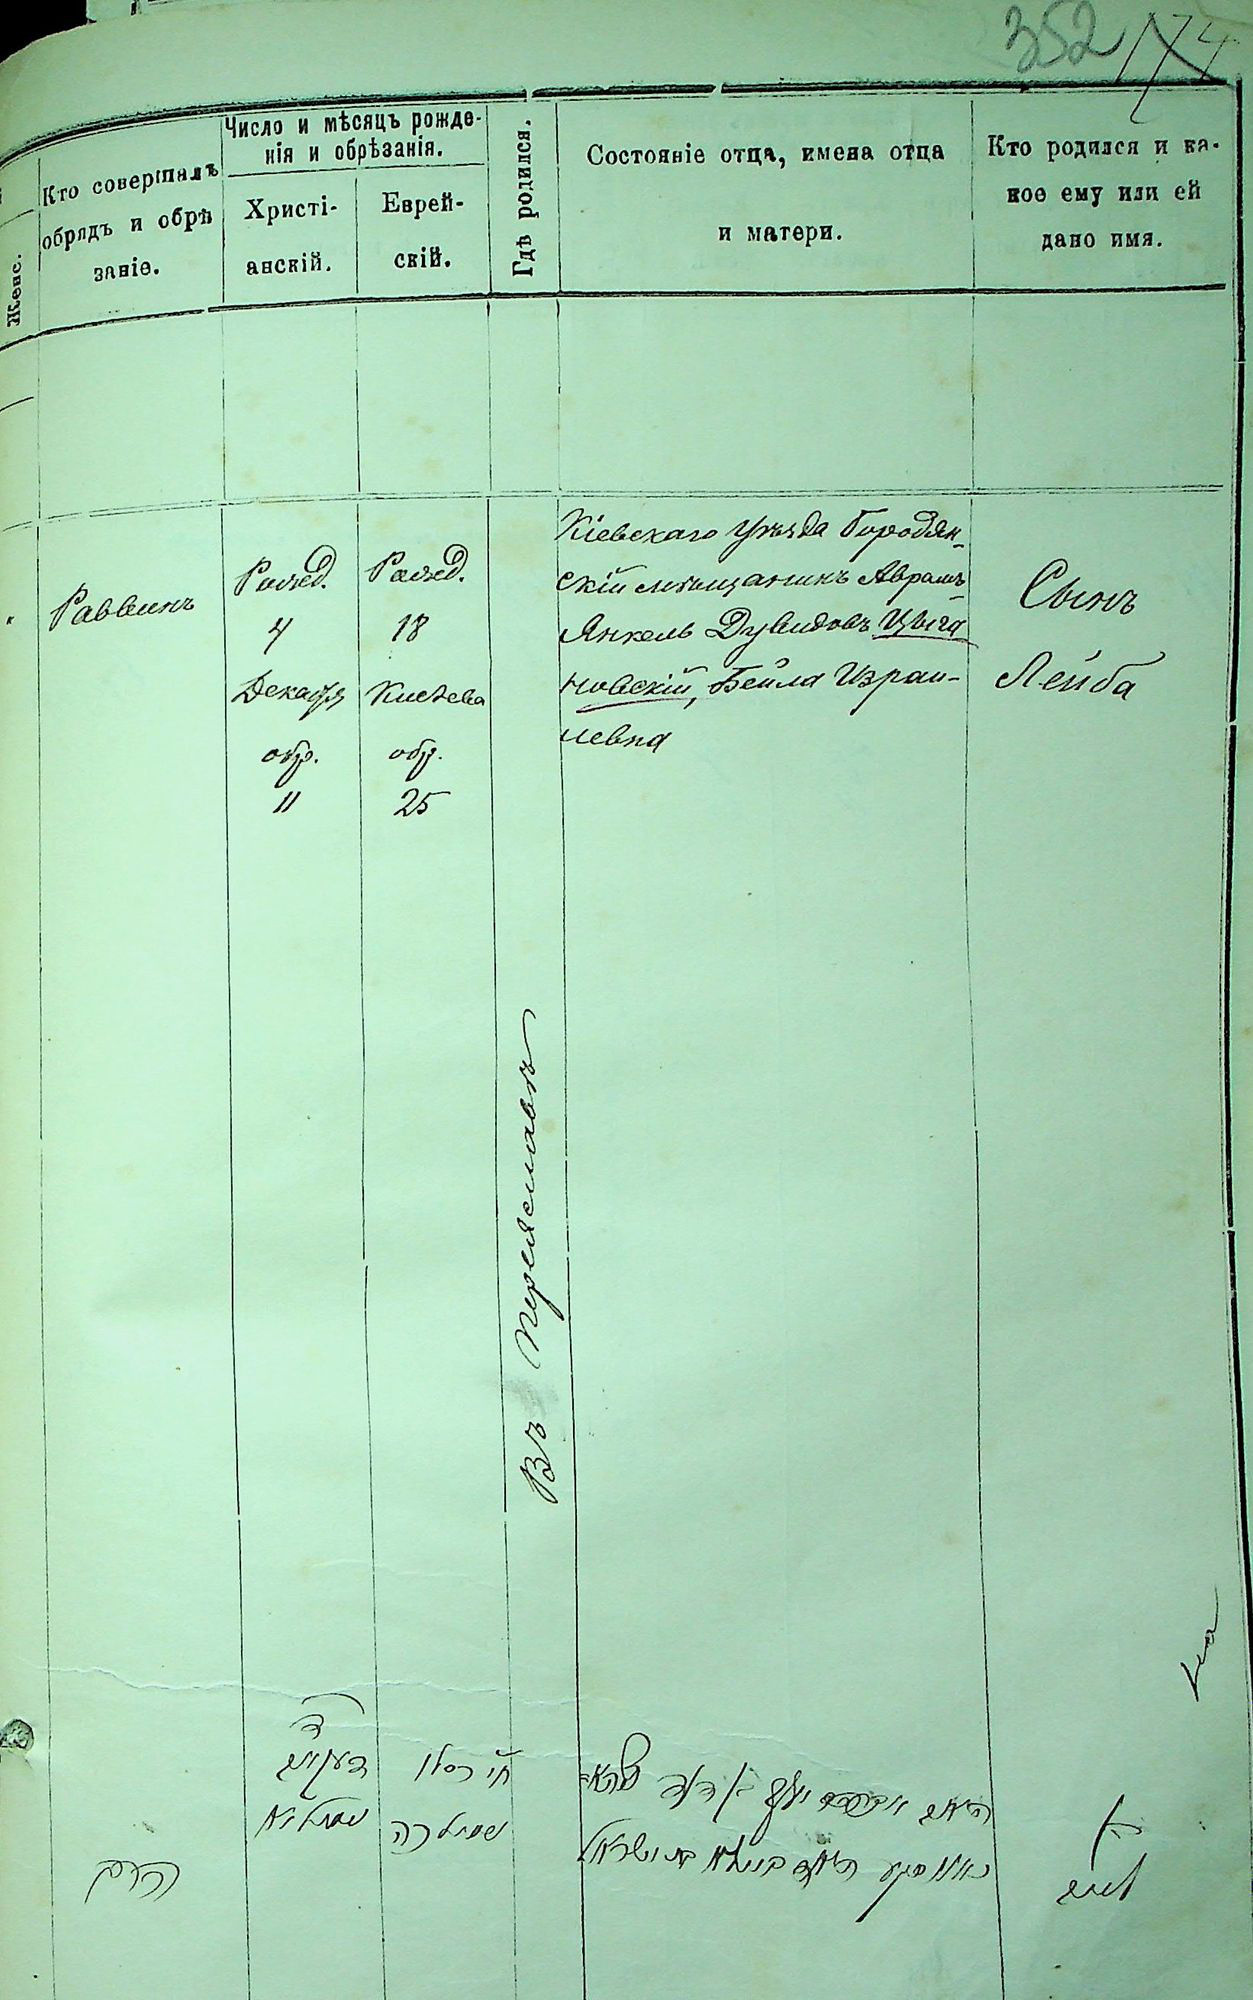 352 174
Женс.
Кто совершалъ
обрядъ и обрѣ
заніе.
Число и мѣсяцъ рожде-
нія и обрѣзанія.
Христі-
анскій.
Еврей-
скій.
Гдѣ родился.
Состояніе отца, имена отца
и матери.
Кто родился и ка-
кое ему или ей
дано имя.
Раввинъ
Рожд.
4
Декабря
обр.
11
Рожд.
18
Кислева
обр.
25
Въ Переяславѣ
Кіевскаго Уѣзда Бородян-
скій мѣщанинъ Аврамъ-
Янкель Дувидовъ Цыга
новскій, Бейла Израи-
левна
Сынъ
Лейба
הרב
ד
דעקאב
חי כסלו
בן